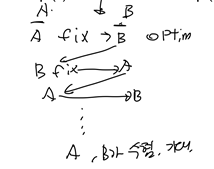 A B
A fix → B optim
B fix → A
A → B
⋮
A, B가 수렴.